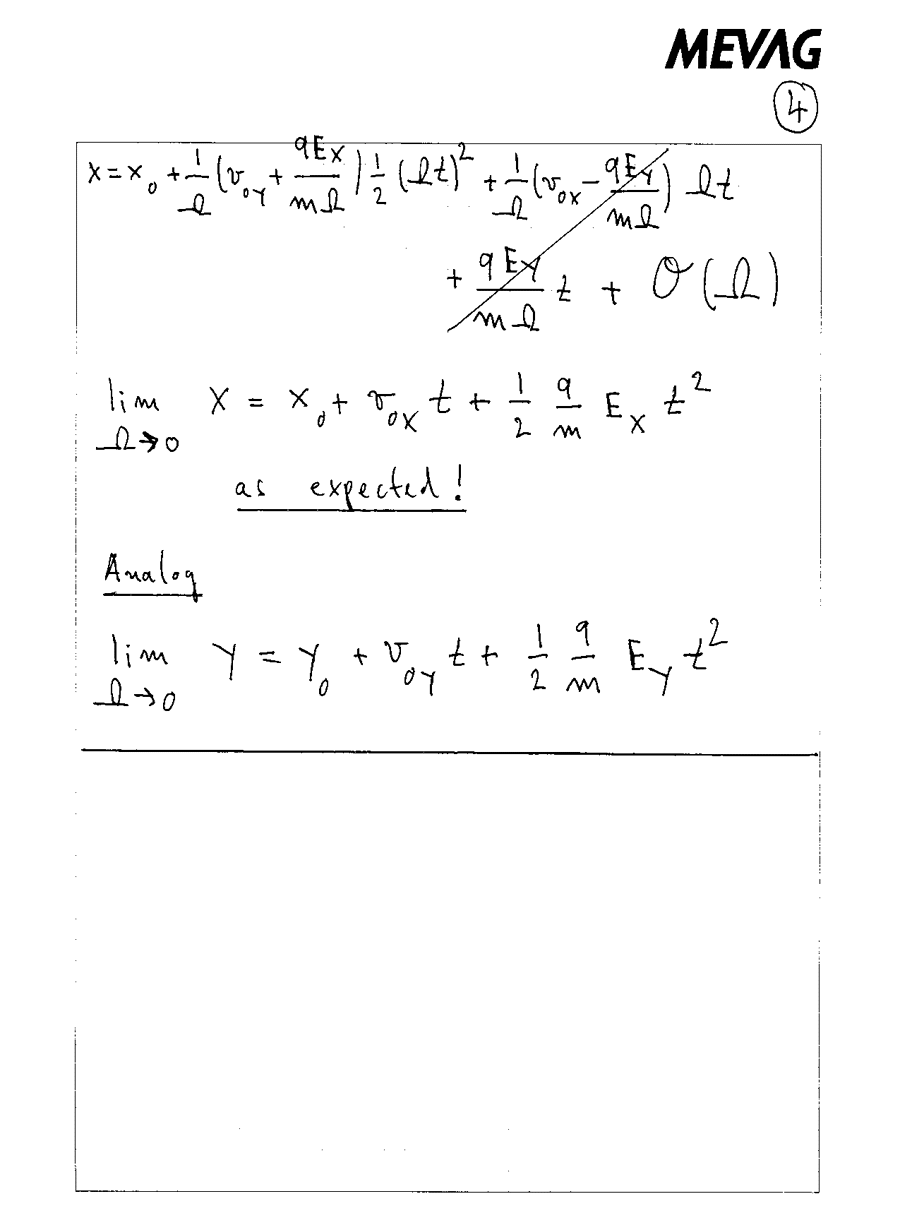 MEVAG
4
x = x₀ + 1/Ω (v₀y + qEx/mΩ) 1/2 (Ωt)² + 1/Ω (v₀x − qEy/mΩ) Ωt
+ qEy/mΩ t + O(Ω)
lim Ω→0 x = x₀ + v₀x t + 1/2 q/m Ex t²
as expected!
Analog
lim Ω→0 y = y₀ + v₀y t + 1/2 q/m Ey t²